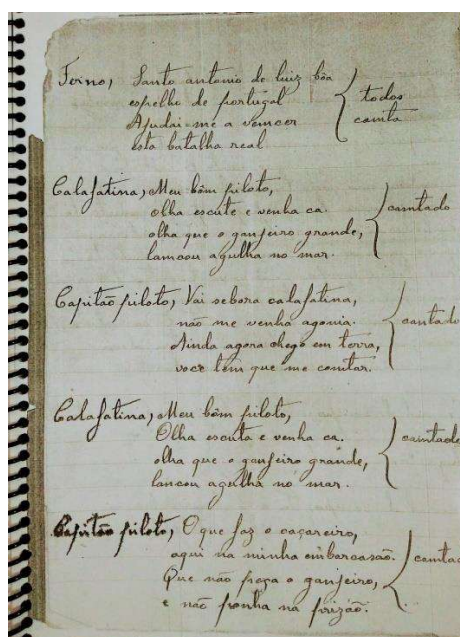 Terno, Santo antonio de luiz bôa
espelho de portugal
Ajudai-me a vencer
esta batalha real
todos
camta
Calafatina, Meu bôm piloto,
olha escute e venha ca.
olha que o ganjeiro grande,
lamcou agulha no mar.
camtado
Capitão piloto, Vai sebora calafatina,
não me venha agonia.
Ainda agora chego em terra,
voce tem que me comtar.
cantado
Calafatina, Meu bôm piloto,
Olha escuta e venha ca.
olha que o ganjeiro grande,
lancou agulha no mar.
camtado
Capitão piloto, O que faz o caçareiro,
aqui na minha embarcasão.
Que não peça o ganjeiro,
e não ponha na prizão.
camtad